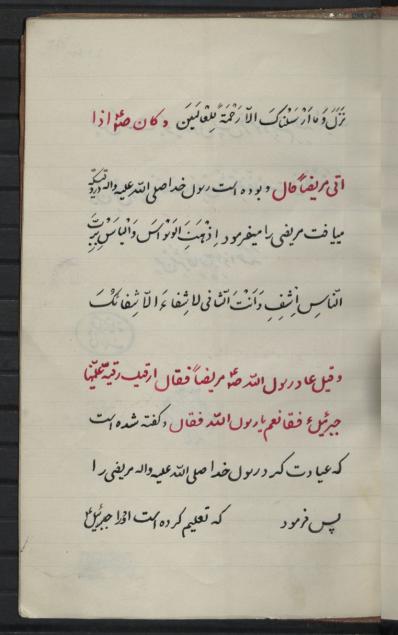 نزل وما ارسلناك الا رحمة للعالمين وكان صلعم اذا
اتى مريضاً قال وبوده است رسول خدا صلى الله عليه واله در وقتيكه
ميافت مريضى را ميفرمود اذهب الوسواس والباس رب
الناس اشف وانت الشافى لا شفاء الا شفائك
وقيل عاد رسول الله صلعم مريضاً فقال ارقيك رقية علّمنيها
جبرئيل ع فقال نعم يا رسول الله فقال وگفته شده است
كه عيادت كرد رسول خدا صلى الله عليه واله مريضى را
پس فرمود كه تعليم كرده است اورا جبرئيل ع